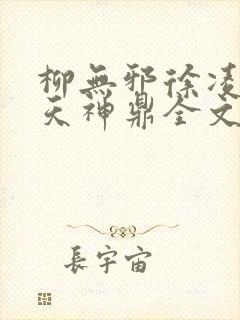 柳無邪徐凌
天神鼎全文
長宇宙